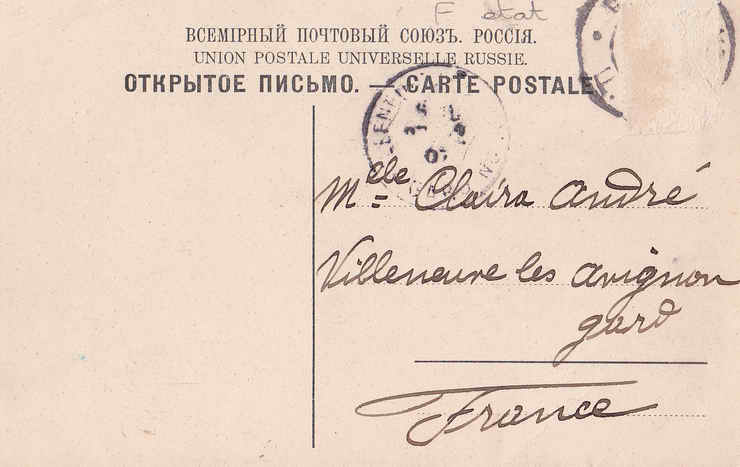 F etat
ВСЕМІРНЫЙ ПОЧТОВЫЙ СОЮЗЪ. РОССІЯ.
UNION POSTALE UNIVERSELLE RUSSIE.
ОТКРЫТОЕ ПИСЬМО. — CARTE POSTALE.
Melle Claira André
Villeneuve les avignon
gard
France